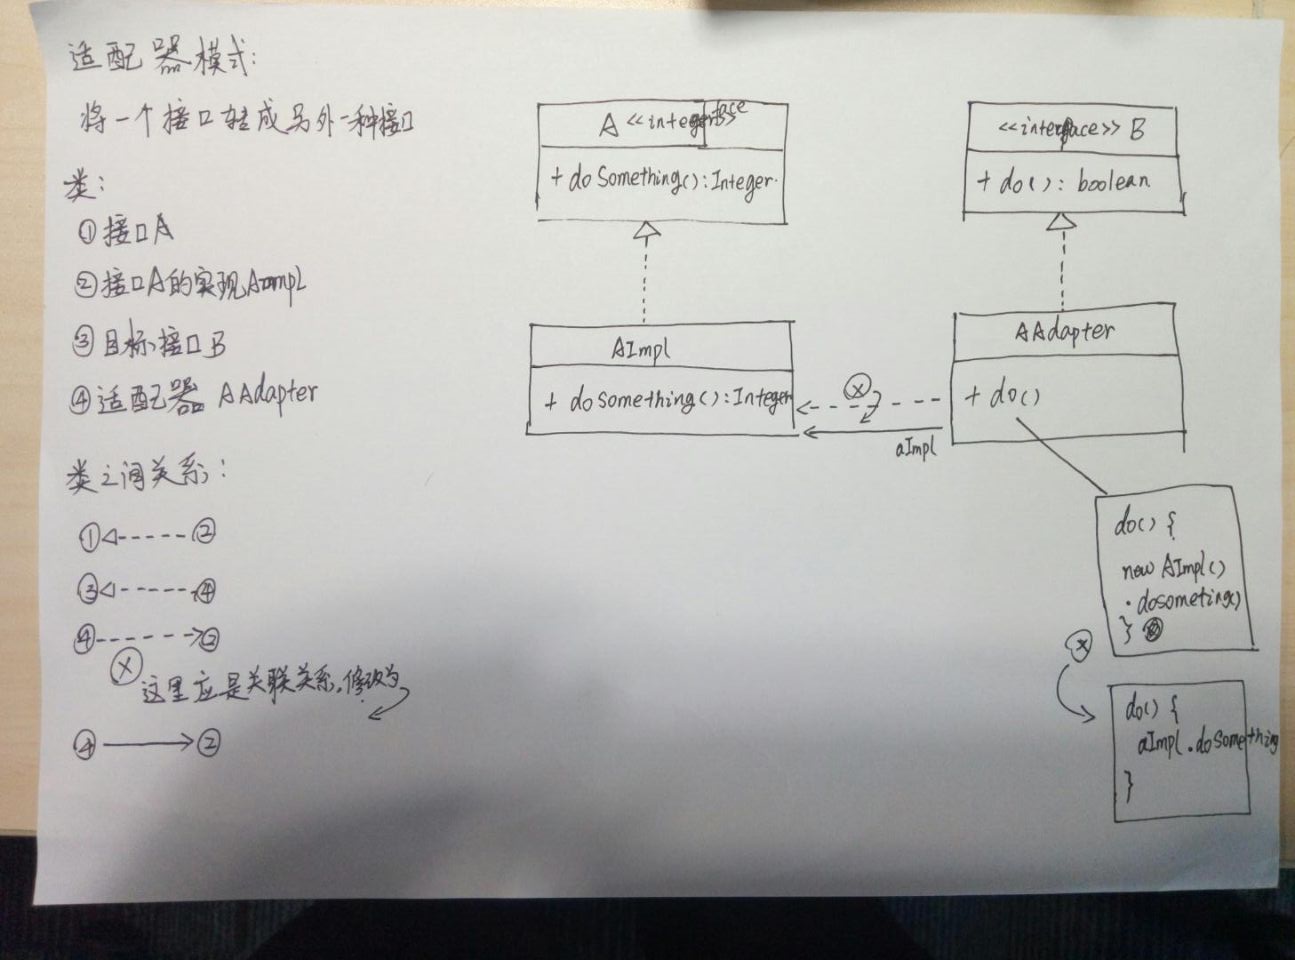 适配器模式:
将一个接口转成另外一种接口
类:
①接口A
②接口A的实现AImpl
③目标接口B
④适配器 AAdapter
类之间关系:
① ②
③ ④
④ ②
X
这里应是关联关系,修改为
④ ②
A <<interface>>
+ doSomething():Integer
<<interface>> B
+ do(): boolean
AImpl
+ doSomething():Integer
AAdapter
+ do()
X
aImpl
do() {
new AImpl()
.dosometing()
}
X
do() {
aImpl.doSomething
}